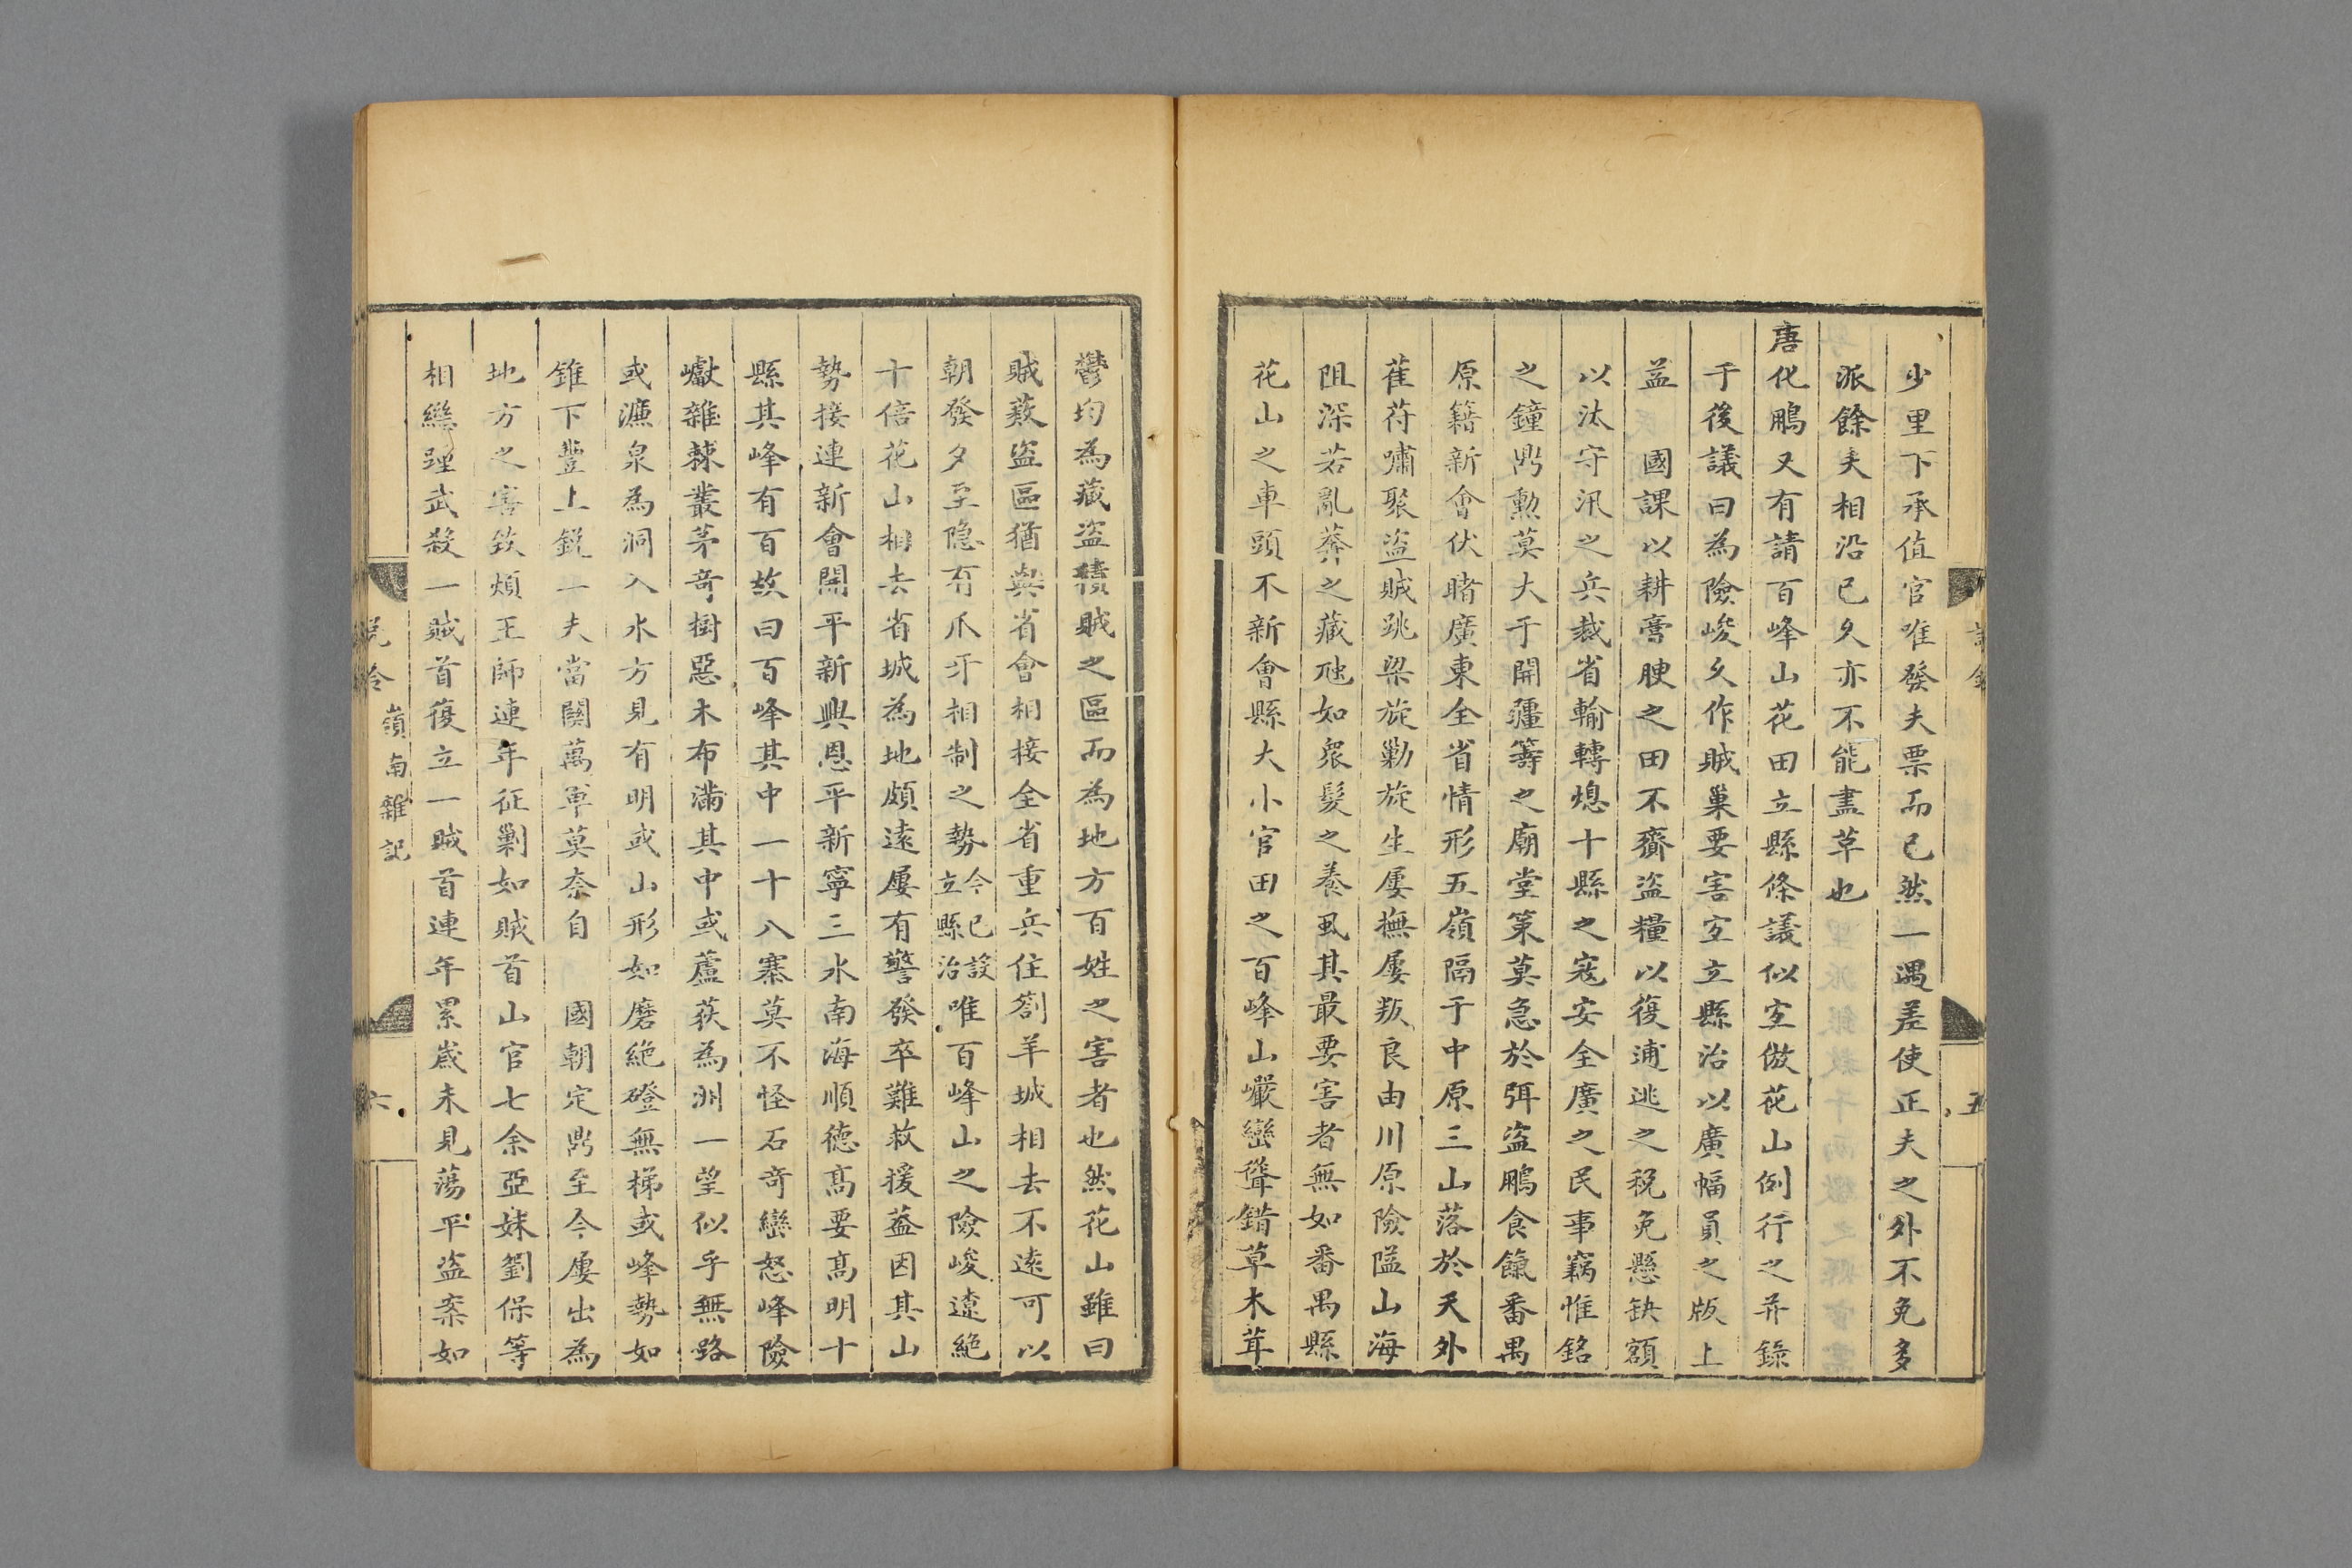 少里下承值官唯發夫票而已然一遇差使正夫之外不免多
派餘夫相沿已久亦不能盡草也
唐化鵬又有請百峰山花田立縣條議似宜倣花山例行之并錄
于後議曰為險峻久作賊巢要害宜立縣治以廣幅員之版上
益　國課以耕膏腴之田不齎盜糧以復逋逃之稅免懸缺額
以汰守汛之兵裁省輸轉熄十縣之寇安全廣之民事竊惟銘
之鐘鼎勳莫大于開疆籌之廟堂策莫急於弭盜鵬食餼番禺
原籍新會伏睹廣東全省情形五嶺隔于中原三山落於天外
萑苻嘯聚盜賊跳梁旋勦旋生屢撫屢叛良由川原險隘山海
阻深若亂莽之藏虺如衆髮之養虱其最要害者無如番禺縣
花山之車頭不新會縣大小官田之百峰山巖巒聳錯草木茸
鬱均為藏盜積賊之區而為地方百姓之害者也然花山雖曰
賊藪盜區猶與省會相接全省重兵住劄羊城相去不遠可以
朝發夕至隱有爪牙相制之勢今已設立縣治唯百峰山之險峻遼絕
十倍花山相去省城為地頗遠屢有警發卒難救援蓋因其山
勢接連新會開平新興恩平新寧三水南海順德高要高明十
縣其峰有百故曰百峰其中一十八寨莫不怪石奇巒怒峰險
巘雜棘叢茅奇樹惡木布滿其中或蘆荻為洲一望似乎無路
或濂泉為洞入水方見有明或山形如磨絕磴無梯或峰勢如
錐下豐上銳一夫當關萬軍莫奈自　國朝定鼎至今屢出為
地方之害致煩王師連年征剿如賊首山官七余亞妹劉保等
相繼踵武殺一賊首復立一賊首連年累歲未見蕩平盜案如
說鈴　嶺南雜記　六
五